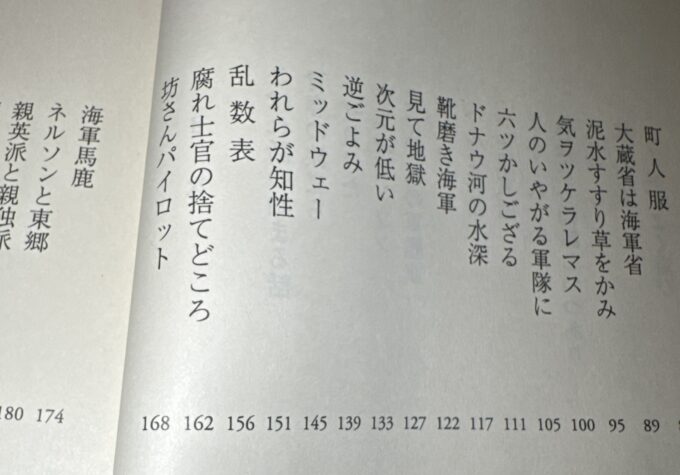 町人服
大蔵省は海軍省 89
泥水すすり草をかみ 95
気ヲツケラレマス 100
人のいやがる軍隊に 105
六ツかしござる 111
ドナウ河の水深 117
靴磨き海軍 122
見て地獄 127
次元が低い 133
逆ごよみ 139
ミッドウェー 145
われらが知性 151
乱数表 156
腐れ士官の捨てどころ 162
坊さんパイロット 168
海軍馬鹿 174
ネルソンと東郷 180
親英派と親独派